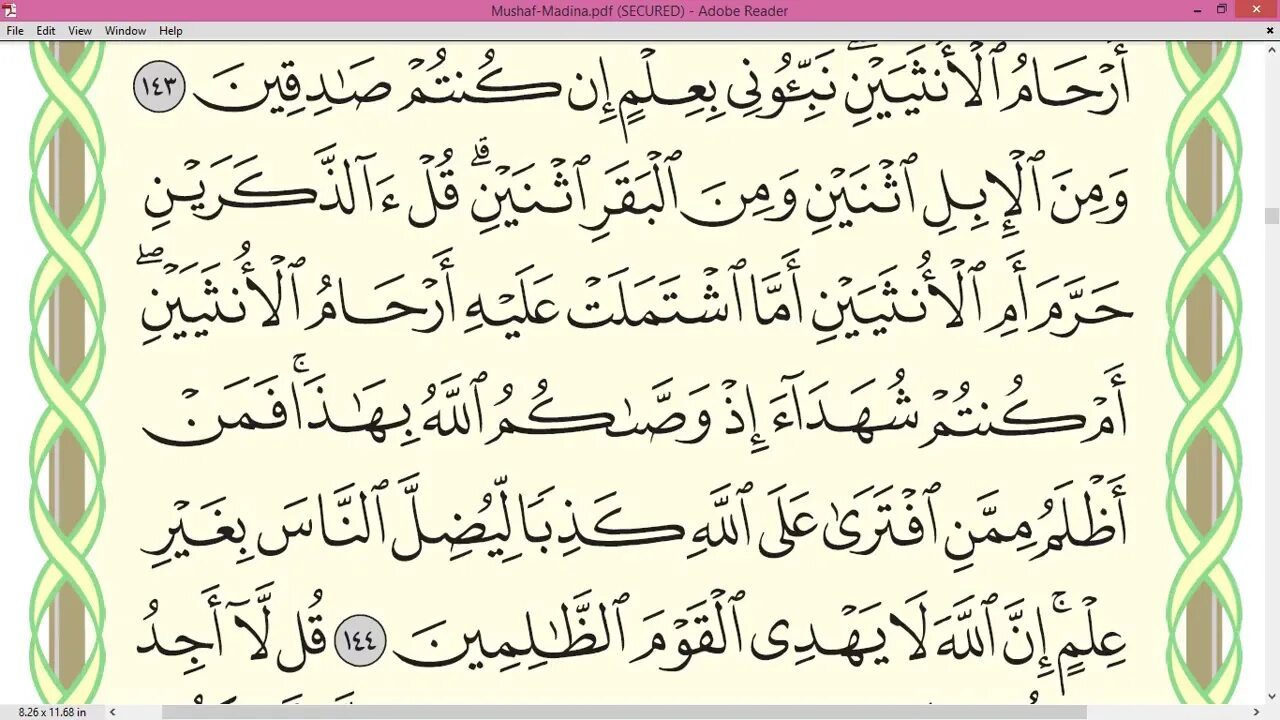 Mushaf-Madina.pdf (SECURED) - Adobe Reader
File Edit View Window Help
أَرۡحَامُ ٱلۡأُنثَيَيۡنِۖ نَبِّـُٔونِي بِعِلۡمٍ إِن كُنتُمۡ صَٰدِقِينَ ١٤٣
وَمِنَ ٱلۡإِبِلِ ٱثۡنَيۡنِ وَمِنَ ٱلۡبَقَرِ ٱثۡنَيۡنِۗ قُلۡ ءَآلذَّكَرَيۡنِ
حَرَّمَ أَمِ ٱلۡأُنثَيَيۡنِ أَمَّا ٱشۡتَمَلَتۡ عَلَيۡهِ أَرۡحَامُ ٱلۡأُنثَيَيۡنِۖ
أَمۡ كُنتُمۡ شُهَدَآءَ إِذۡ وَصَّىٰكُمُ ٱللَّهُ بِهَٰذَاۚ فَمَنۡ
أَظۡلَمُ مِمَّنِ ٱفۡتَرَىٰ عَلَى ٱللَّهِ كَذِبٗا لِّيُضِلَّ ٱلنَّاسَ بِغَيۡرِ
عِلۡمٍۚ إِنَّ ٱللَّهَ لَا يَهۡدِي ٱلۡقَوۡمَ ٱلظَّٰلِمِينَ ١٤٤ قُل لَّآ أَجِدُ
8.26 x 11.68 in